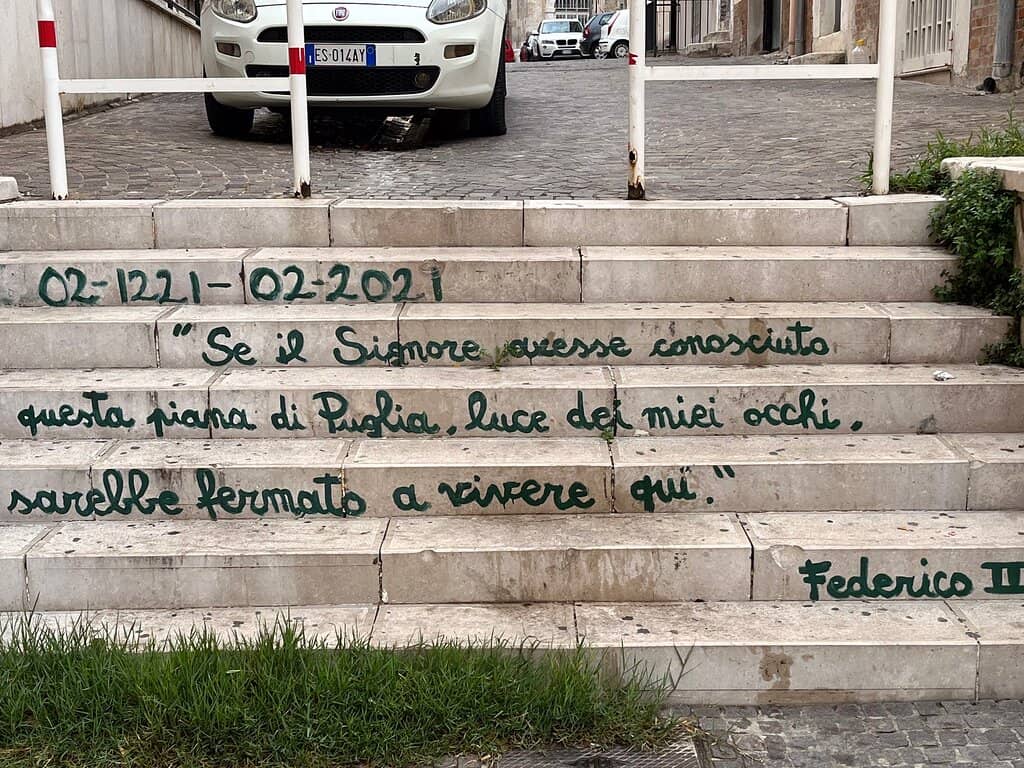 FIAT
ES 014AY
02-1221-02-2021
"Se il Signore avesse conosciuto
questa piana di Puglia, luce dei miei occhi,
sarebbe fermato a vivere qui."
Federico II